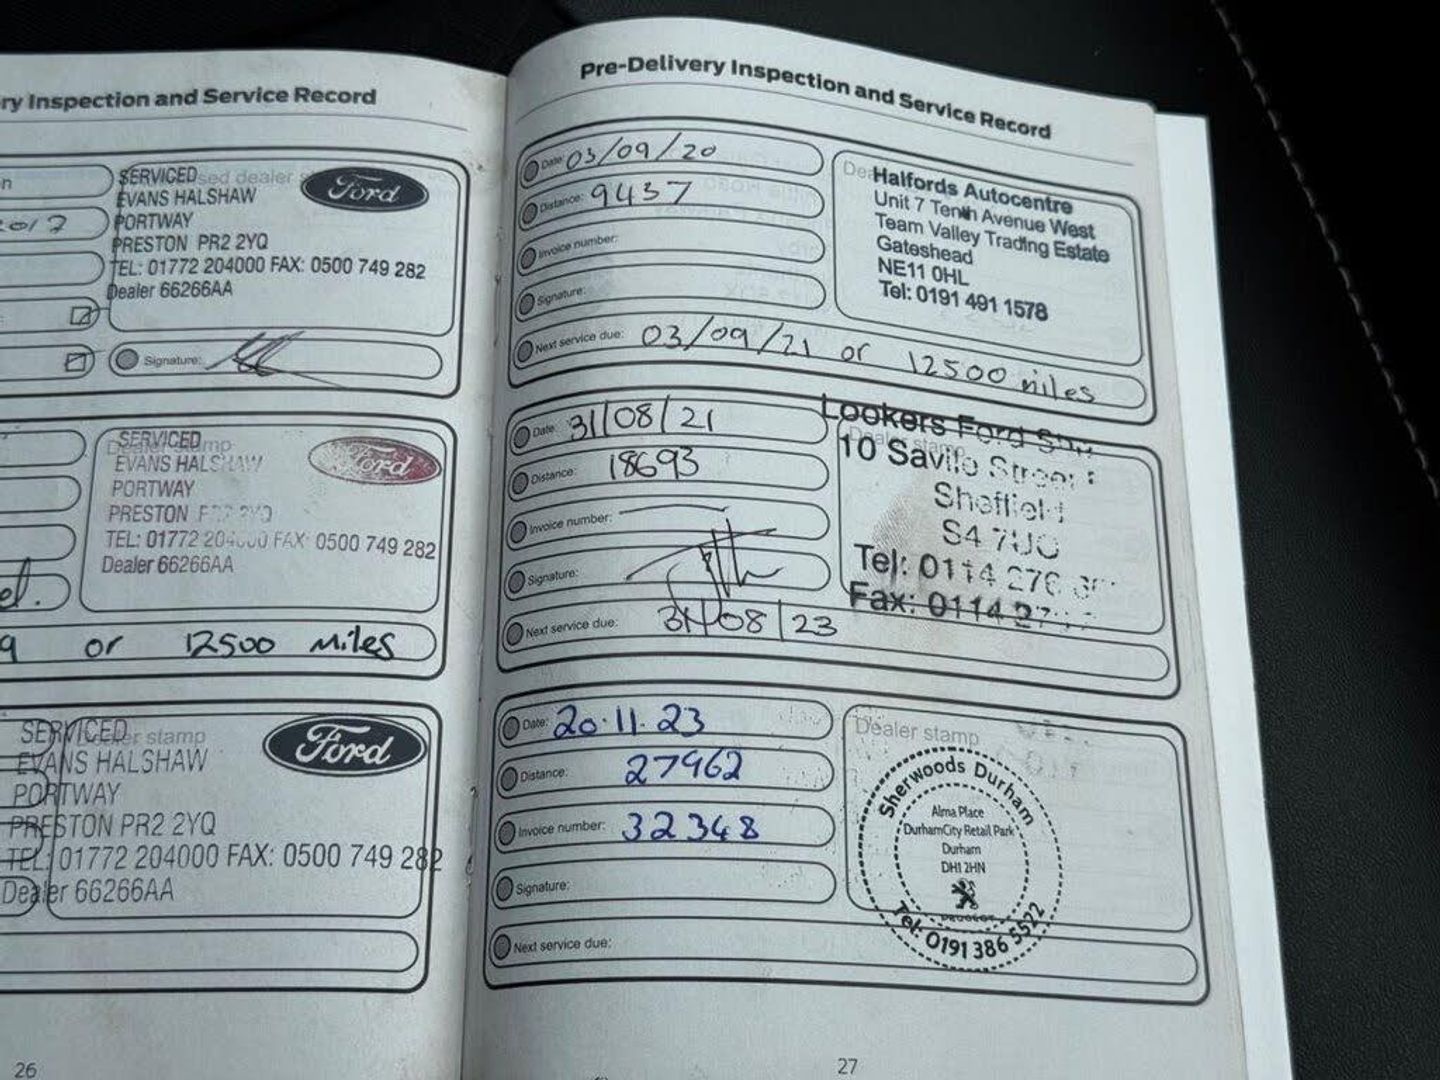 ry Inspection and Service Record
n
2017
SERVICED
EVANS HALSHAW
PORTWAY
PRESTON PR2 2YQ
TEL: 01772 204000 FAX: 0500 749 282
Dealer 66266AA
Ford
Signature:
SERVICED
EVANS HALSHAW
PORTWAY
PRESTON
TEL: 01772 204000 FAX: 0500 749 282
Dealer 66266AA
Ford
9 or 12500 miles
SERVICED
EVANS HALSHAW
PORTWAY
PRESTON PR2 2YQ
TEL: 01772 204000 FAX: 0500 749 282
Dealer 66266AA
Dealer stamp
Ford
26
Pre-Delivery Inspection and Service Record
Date: 03/09/20
Distance: 9437
Invoice number:
Signature:
Next service due: 03/09/21 or 12500 miles
Halfords Autocentre
Unit 7 Tenth Avenue West
Team Valley Trading Estate
Gateshead
NE11 0HL
Tel: 0191 491 1578
Date: 31/08/21
Distance: 18693
Invoice number:
Signature:
Next service due: 31/08/23
Lookers Ford
10 Saville Street
Sheffield
S4 7UQ
Tel: 0114 276
Fax: 0114 27
Date: 20.11.23
Distance: 27962
Invoice number: 32348
Signature:
Next service due:
Dealer stamp
Sherwoods Durham
Alma Place
DurhamCity Retail Park
Durham
DH1 2HN
PEUGEOT
Tel: 0191 386 5522
27